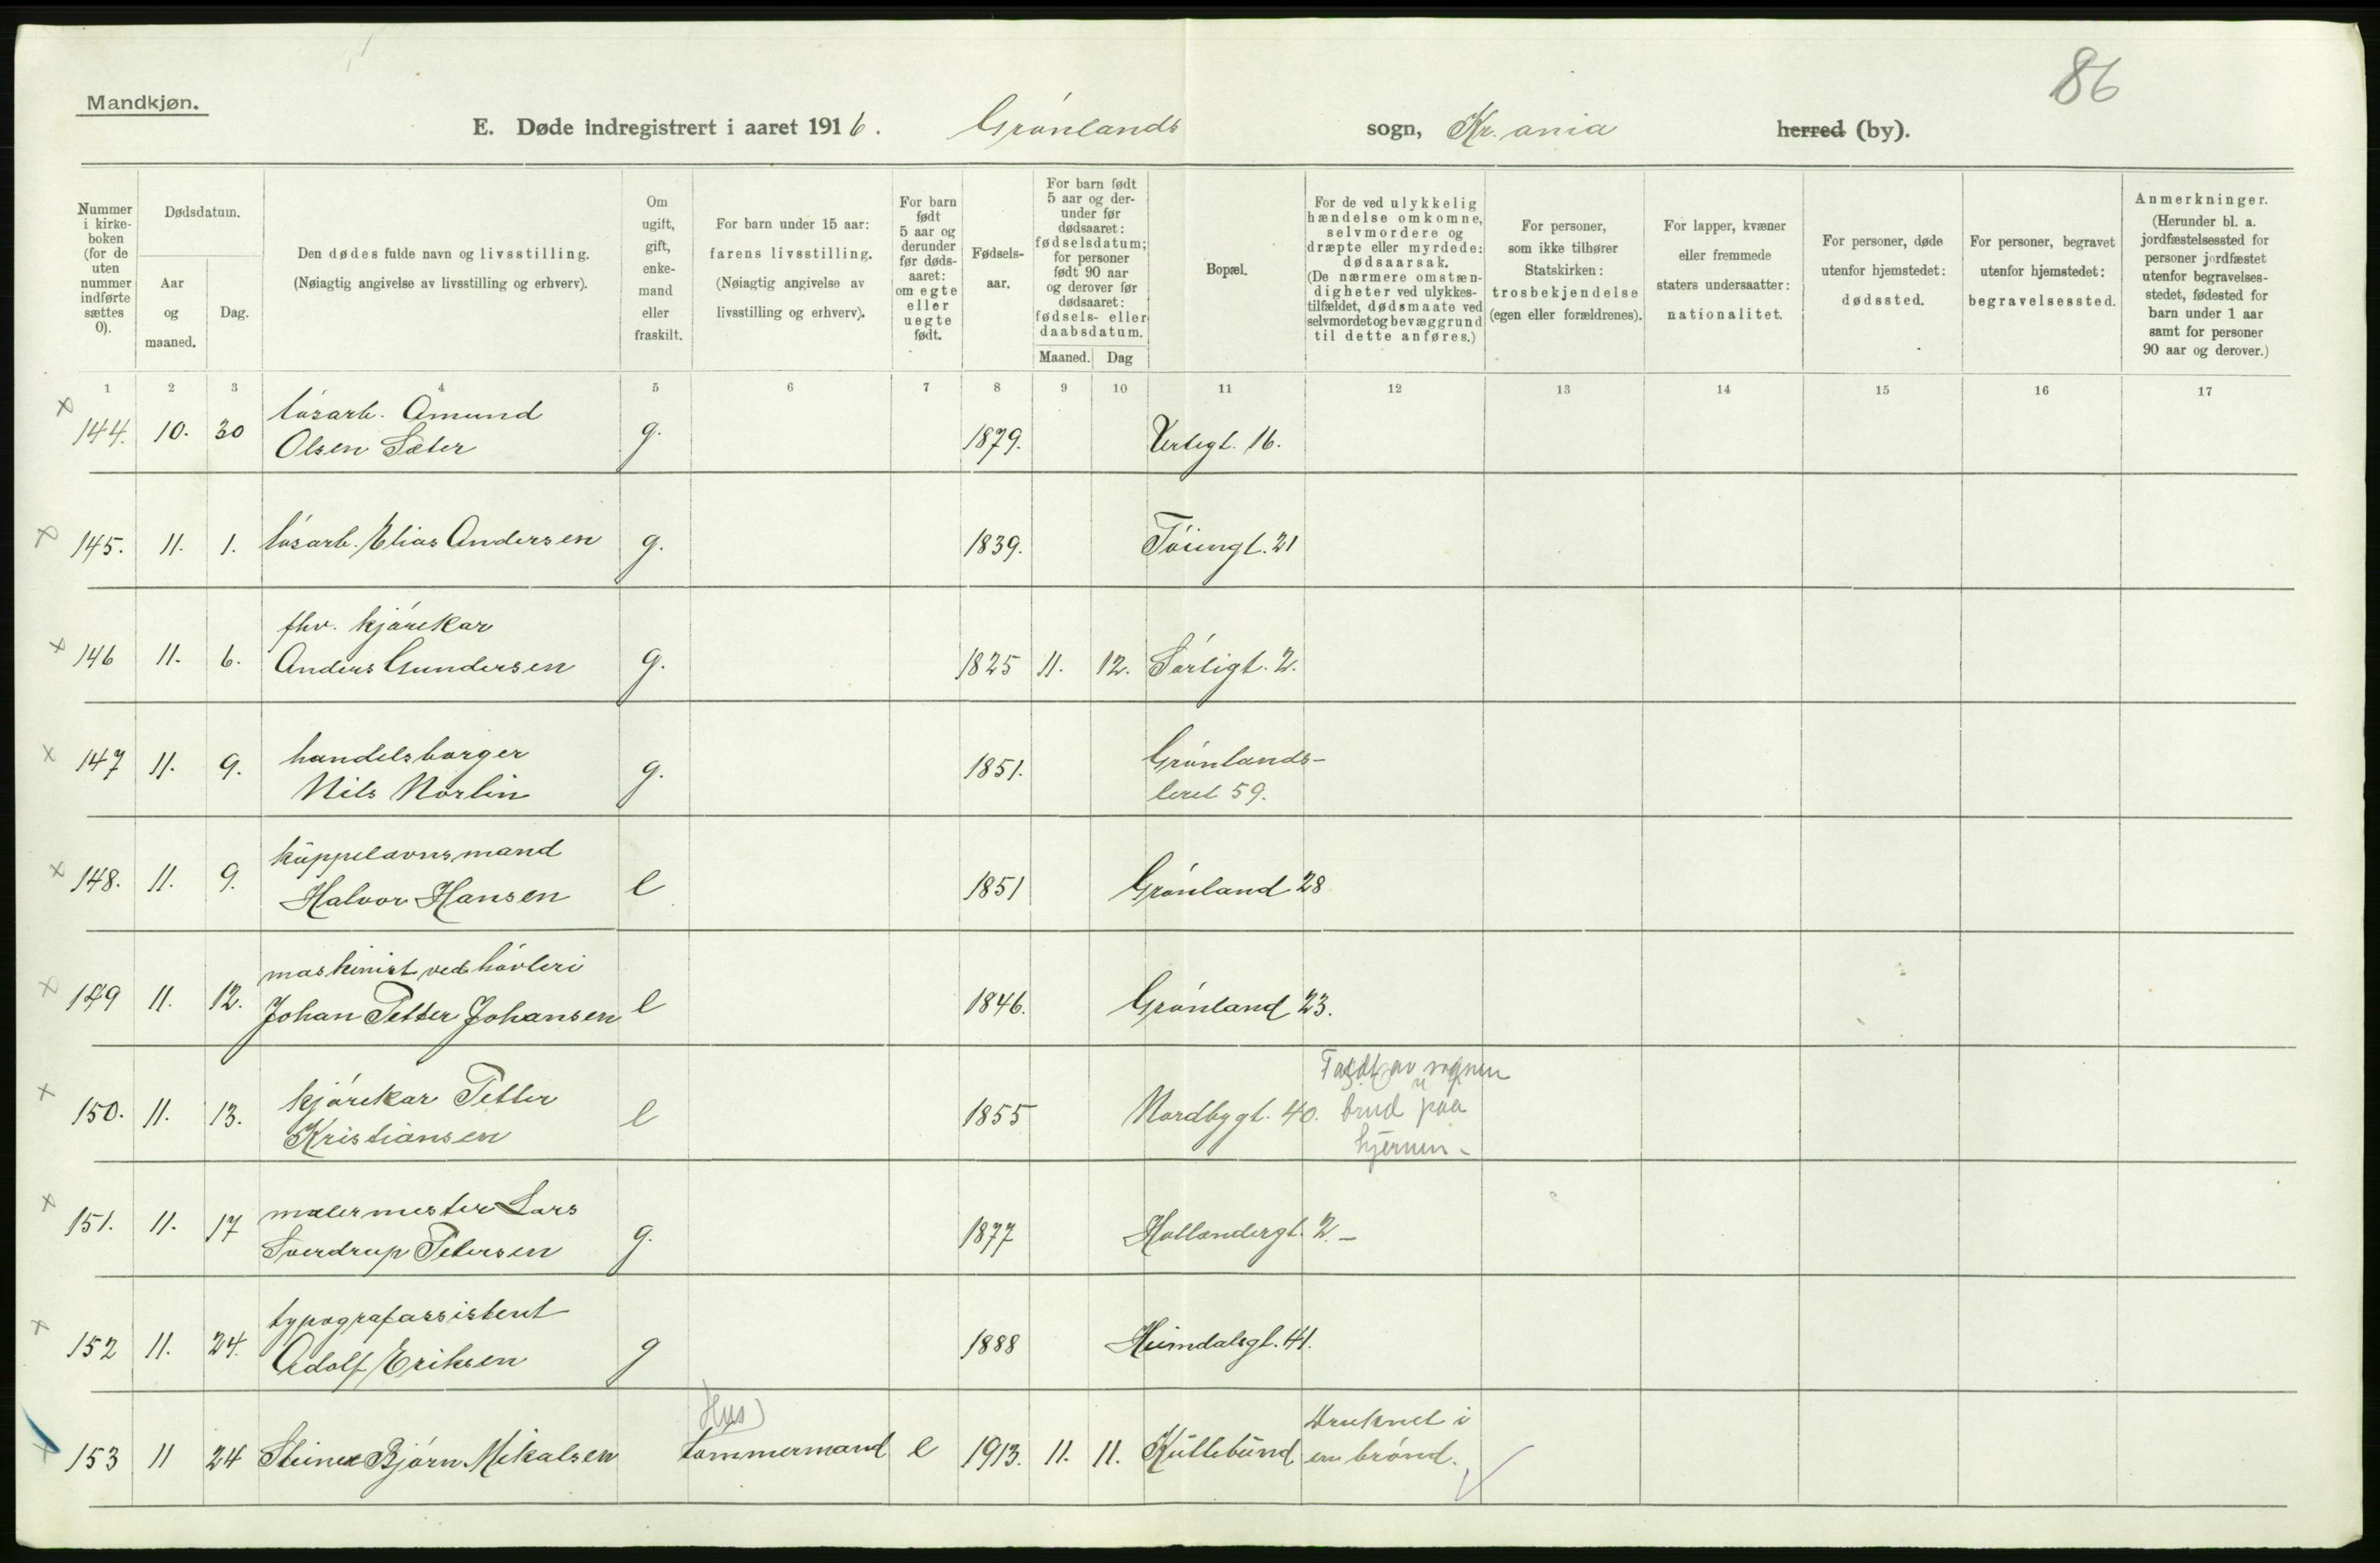 86
Mandkjøn.
E. Døde indregistrert i aaret 1916. Grønlands sogn, Kr.ania herred (by).
Nummer i kirke-boken (for de uten nummer indførte sættes 0).
Dødsdatum.
Aar og maaned.
Dag.
Den dødes fulde navn og livsstilling.
(Nøiagtig angivelse av livsstilling og erhverv).
Om ugift, gift, enke-mand eller fraskilt.
For barn under 15 aar: farens livsstilling.
(Nøiagtig angivelse av livsstilling og erhverv).
For barn født 5 aar og derunder før døds-aaret: om egte eller uegte født.
Fødsels-aar.
For barn født 5 aar og der-under før dødsaaret: fødselsdatum; for personer født 90 aar og derover før dødsaaret: fødsels- eller daabsdatum.
Maaned. Dag
Bopæl.
For de ved ulykkelig hændelse omkomne, selvmordere og dræpte eller myrdede: dødsaarsak.
(De nærmere omstæn-digheter ved ulykkes-tilfældet, dødsmaate ved selvmordet og bevæggrund til dette anføres.)
For personer, som ikke tilhører Statskirken: trosbekjendelse (egen eller forældrenes).
For lapper, kvæner eller fremmede staters undersaatter: nationalitet.
For personer, døde utenfor hjemstedet: dødssted.
For personer, begravet utenfor hjemstedet: begravelsessted.
Anmerkninger.
(Herunder bl. a. jordfæstelsessted for personer jordfæstet utenfor begravelses-stedet, fødested for barn under 1 aar samt for personer 90 aar og derover.)
1 2 3 4 5 6 7 8 9 10 11 12 13 14 15 16 17
x 144. 10. 30 løsarb. Amund
Olsen Sæter g. 1879. Urtegt. 16.
x 145. 11. 1. løsarb. Elias Andersen g. 1839. Tøiengt. 21
x 146 11. 6. fhv. kjørekar
Anders Gundersen g. 1825 11. 12. Sørligt. 2.
x 147 11. 9. handelsborger
Nils Norlin g. 1851. Grønlands-
leret 59.
x 148. 11. 9. kuppelovnsmand
Halvor Hansen e 1851 Grønland 28
x 149 11. 12. maskinist ved høvleri
Johan Petter Johansen e 1846. Grønland 23.
x 150. 11. 13. kjørekar Petter
Kristiansen e 1855 Nordbygt. 40. av vognen
brud paa
hjernen -
x 151. 11. 17 malermester Lars
Sverdrup Petersen g. 1877 Hollendergt. 2. -
x 152 11. 24. typografassistent
Adolf Eriksen g 1888 Heimdalsgt. 41.
x 153 11 24 Steinar Bjørn Mikalsen Hus
tømmermand e 1913. 11. 11. Kullebund Druknet i
en brønd.